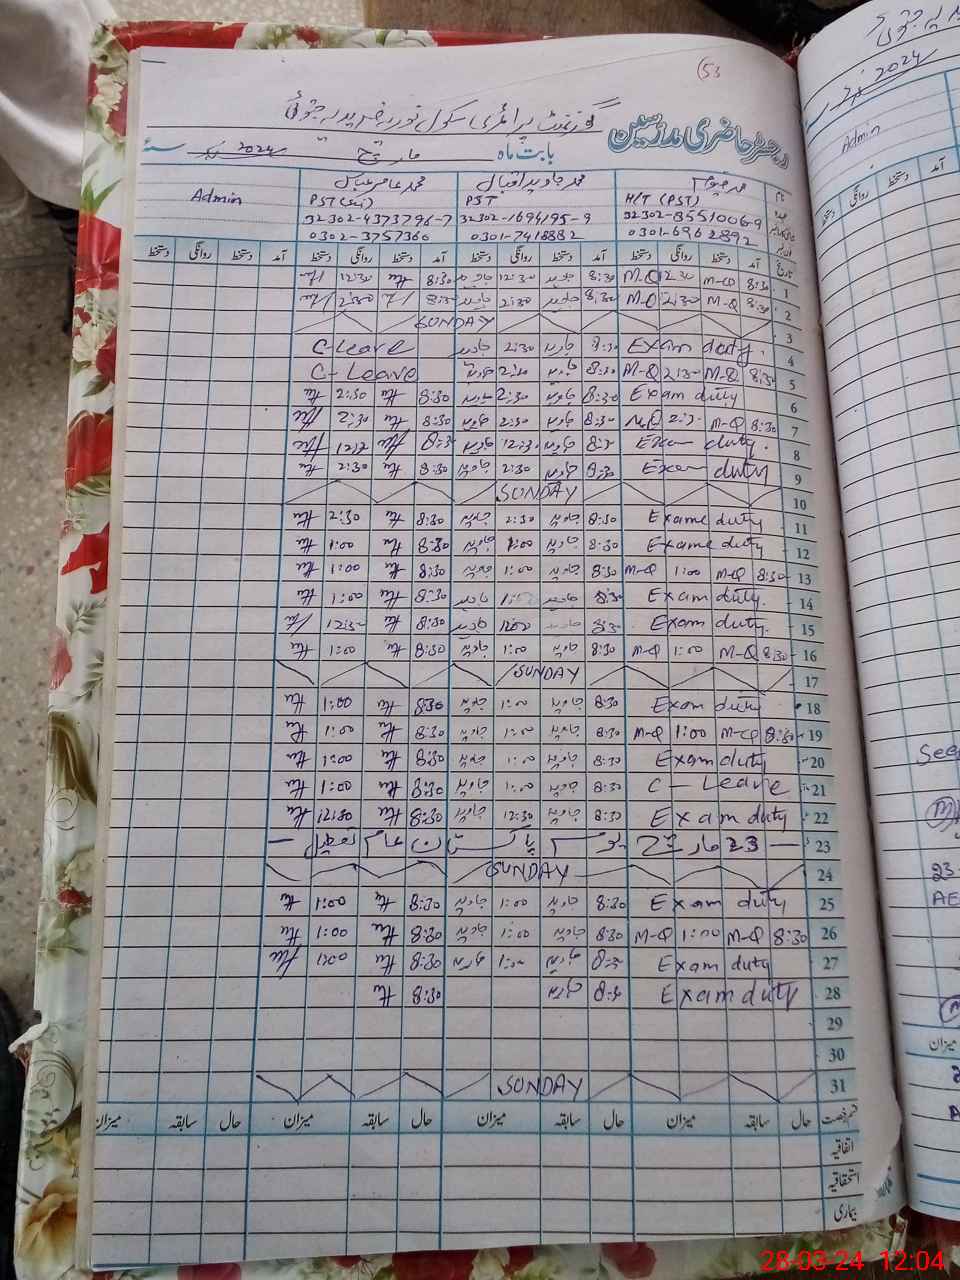 53
گورنمنٹ پرائمری سکول نور
رجسٹر حاضری مدرسین
بابت ماہ مارچ 2024 سنہ
نام محمد قیوم محمد جاوید اقبال محمد عامر عباس Admin
عہدہ H/T (PST) PST PST
32302-8551006-9 32302-1694195-9 32302-4373796-7
0301-6962892 0301-7418882 0302-3757360
تاریخ آمد دستخط روانگی دستخط آمد دستخط روانگی دستخط آمد دستخط روانگی دستخط آمد دستخط روانگی دستخط
1 8:30 M-Q 12:30 M-Q 8:30 جاوید 12:30 جاوید 8:30 12:30
2 8:30 M-Q 2:30 M-Q 8:30 جاوید 2:30 جاوید 8:30 2:30
3 SUNDAY
4 Exam duty. 8:30 جاوید 2:30 جاوید C-Leave
5 8:30 M-Q 2:30 M-Q 8:30 جاوید 2:30 جاوید C-Leave
6 Exam duty 8:30 جاوید 2:30 جاوید 8:30 2:30
7 8:30 M-Q 2:30 M-Q 8:30 جاوید 2:30 جاوید 8:30 2:30
8 Exam duty. 8:30 جاوید 12:30 جاوید 8:30
9 Exam duty 8:30 جاوید 2:30 جاوید 8:30 2:30
10 SUNDAY
11 Exame duty 8:30 جاوید 2:30 جاوید 8:30 2:30
12 Exame duty 8:30 جاوید 1:00 جاوید 8:30 1:00
13 8:30 M-Q 1:00 M-Q 8:30 جاوید 1:00 جاوید 8:30 1:00
14 Exam duty. 8:30 جاوید جاوید 8:30 1:00
15 Exam duty. 8:30 جاوید جاوید 8:30 12:30
16 8:30 M-Q 1:00 M-Q 8:30 جاوید 1:00 جاوید 8:30 1:00
17 SUNDAY
18 Exam duty 8:30 جاوید 1:00 جاوید 8:30 1:00
19 8:30 M-Q 1:00 M-Q 8:30 جاوید 1:00 جاوید 8:30 1:00
20 Exam duty 8:30 جاوید 1:00 جاوید 8:30 1:00
21 C-Leave 8:30 جاوید 1:00 جاوید 8:30 1:00
22 Exam duty 8:30 جاوید 12:30 جاوید 8:30 12:30
23 — 23 مارچ یوم پاکستان عام تعطیل —
24 SUNDAY
25 Exam duty 8:30 جاوید 1:00 جاوید 8:30 1:00
26 8:30 M-Q 1:00 M-Q 8:30 جاوید 1:00 جاوید 8:30 1:00
27 Exam duty 8:30 جاوید 1:00 جاوید 8:30 1:00
28 Exam duty 8:30 جاوید 8:30
29
30
31 SUNDAY
قسم رخصت حال سابقہ میزان حال سابقہ میزان حال سابقہ میزان حال سابقہ میزان
اتفاقیہ
استحقاقیہ
بیماری
2024
Admin
آمد دستخط روانگی دستخط
23-
میزان
28-03-24 12:04